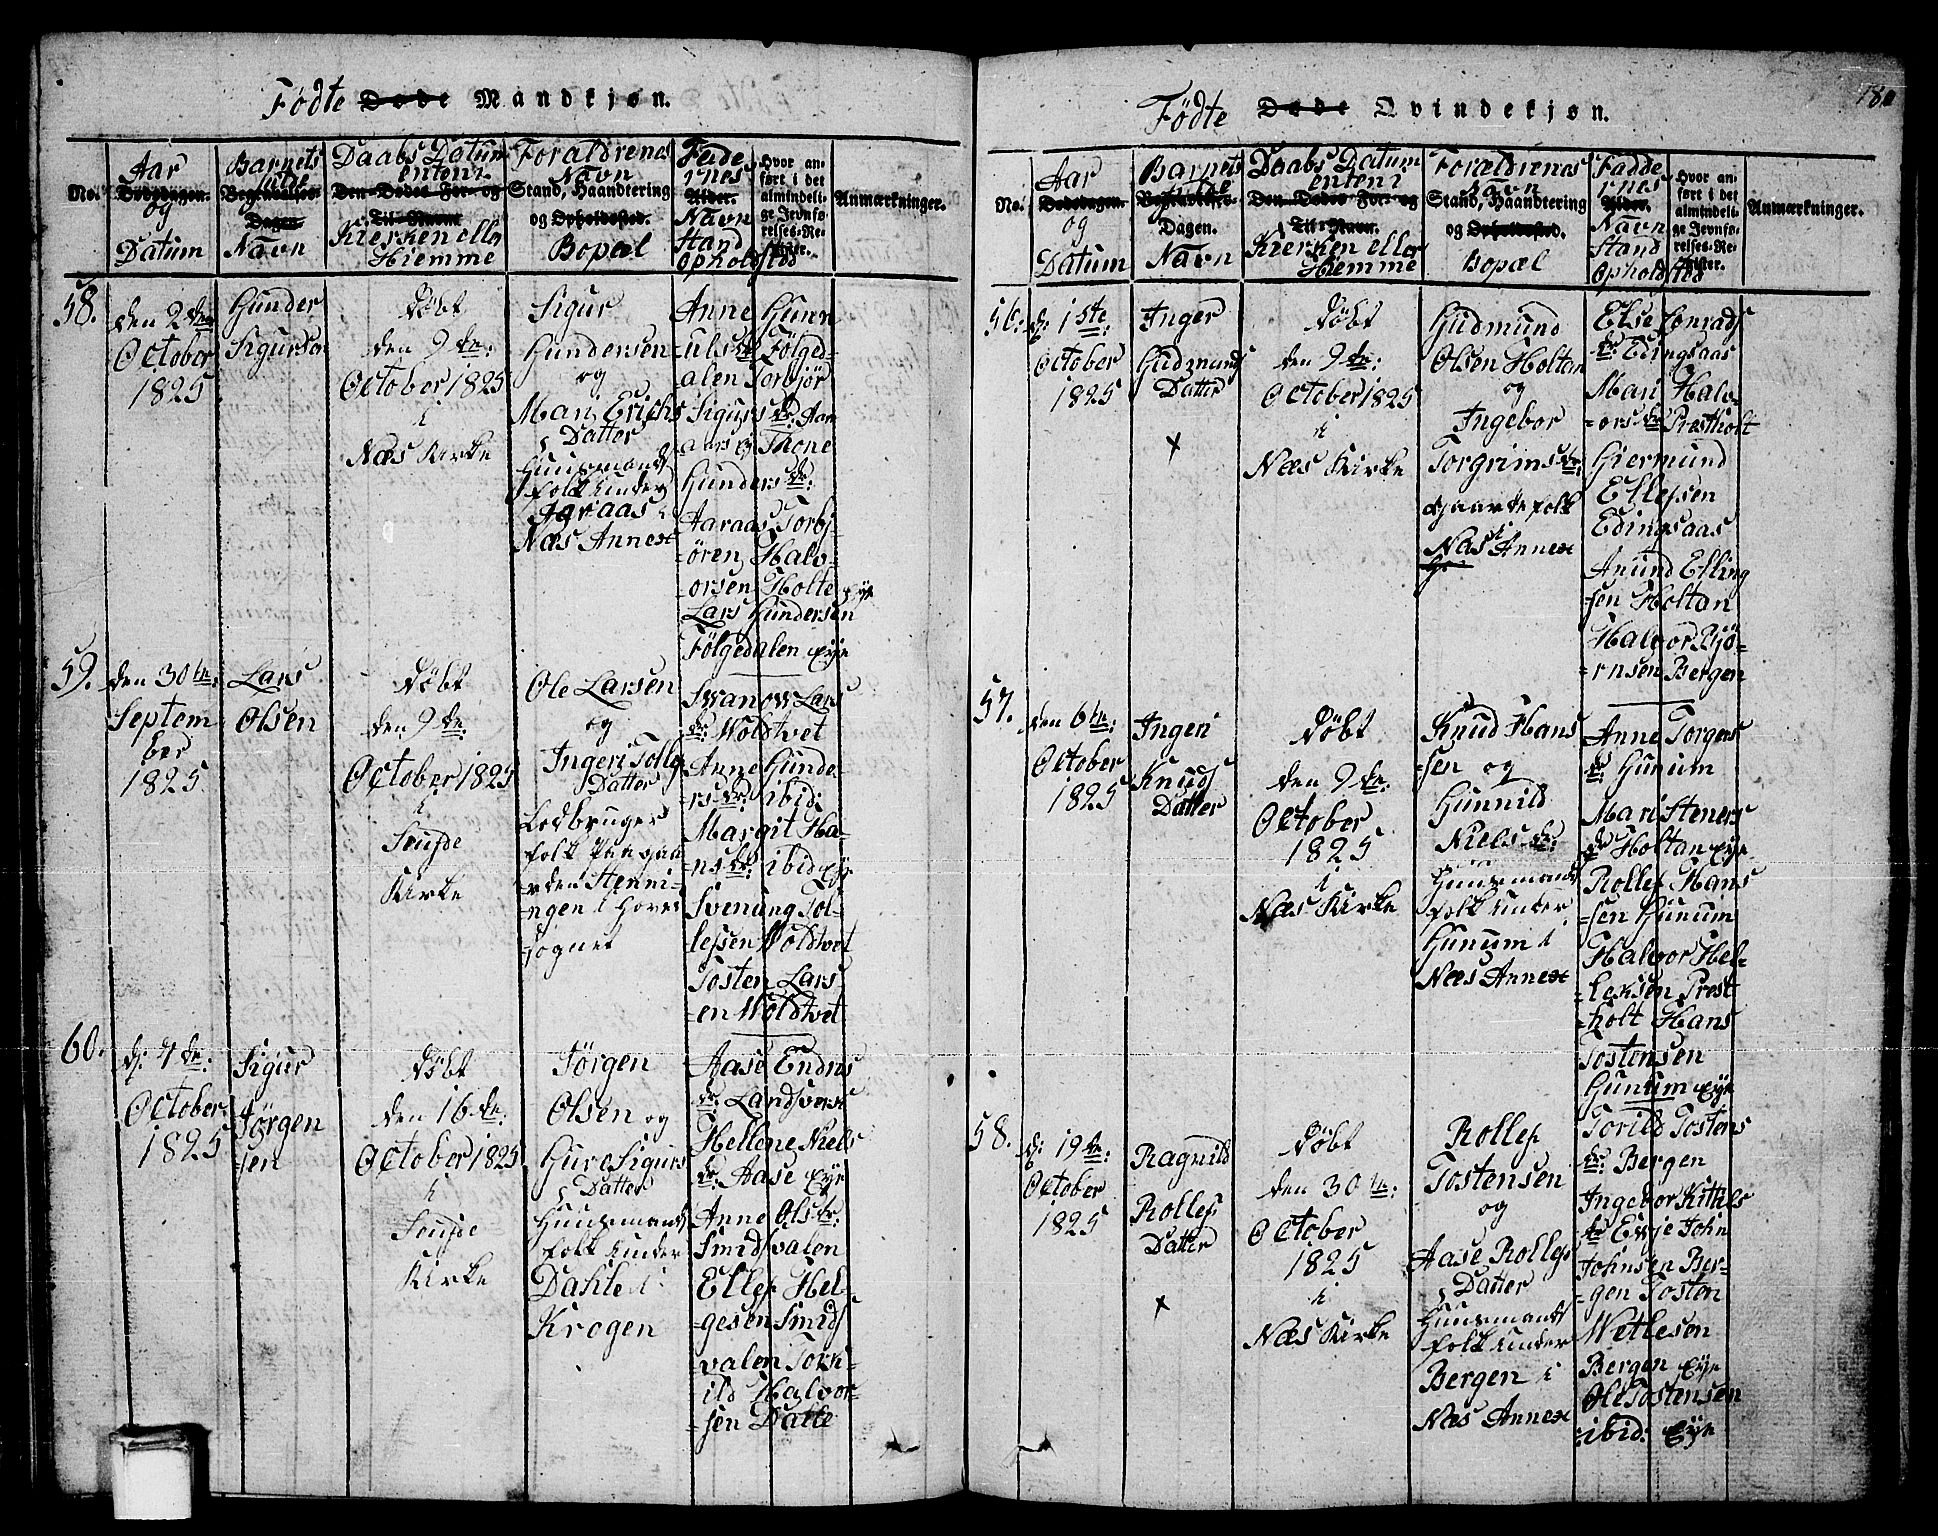 Fødte Døde Mandkjøn.
No.
Aar
Dødsdagen.
og
Datum
Barnets
fulde
Begravelses-
Dagen.
Navn
Daabs Datum
enten i
Den Dødes For- og
Til-Navn.
Kierken eller
Hiemme
Forældrenes
Navn
Stand, Haandtering
og Opholdssted.
Bopæl
Fadde
rnes
Alder.
Navn
Stand
Opholdsted
Hvor an-
ført i det
almindeli-
ge Jevnfø-
relses-Re-
gister.
Anmærkninger.
58.
den 2den
October
1825
Gunder
Sigursen
Døbt
den 9de:
October 1825
i
Næs Kirke
Sigur
Gundersen
og
Mari Erichs
Datter
Huusmands
folk under
Aaraas i
Næs Annex
Anne Gunn
ulsdr Følged-
alen Torbjør
Sigursdr Aar
aas og Thone
Gundersdr:
Aaraas Torbj
-ören Halv-
orsen Holte eye
Lars Gundersen
Fölgedalen eye
59.
den 30te:
Septem
ber
1825
Lars
Olsen
Døbt
den 9de:
October 1825
i
Seufde
Kirke
Ole Larsen
og
Ingeri Tollefs
Datter
-ngen i Hoved
sognet
Svanov Lars
dr: Woldtvet
Anne Gunde-
rsdr: ibid:
Margit Ha-
nsdr: ibid eye
Svenung Tol-
lefsen Woldtvet
Tosten Lars
-en Woldtvet
60.
d: 4de:
October
1825
Sigur
Jørgen
sen
Døbt
den 16de:
October 1825
i
Seufde
Kirke
Jørgen
Olsen og
Gure Sigurs
Datter
Huusmands
folk under
Dahle i
Krogen
Aase Endres
dr: Landsverk
Hellene Niels
dr: Aase eye
Anne Olsdr:
Smidsvalen
Ellef Hel-
gesen Smids
valen Tork-
ild Halvor-
sen Dalle
Fødte Døde Qvindekjøn.
180
No.
Aar
Dødsdagen.
og
Datum
Barnets
fulde
Begravelses-
Dagen.
Navn
Daabs Datum
enten i
Den Dødes For- og
Til-Navn.
Kierken eller
Hiemme
Forældrenes
Navn
Stand, Haandtering
og Opholdssted.
Bopæl
Fadde
rnes
Alder.
Navn
Stand
Opholdsted
Hvor an-
ført i det
almindeli-
ge Jevnfø-
relses-Re-
gister.
Anmærkninger.
56.
d: 1ste
October
1825
Inger
Gudmunds
Datter
x
Døbt
den 9de:
October 1825
i
Næs Kirke
Gudmund
Olsen Holtan
og
Ingebor
Torgrimsdr:
Gaardefolk
i
Næs Annex
Else Conrads
dr: Edingsaas
Mari Halv-
-orsdr Prestholt
Giermund
Ellefsen
Edingsaas
Anund Elling
-sen Holtan
Halvor Bjö-
rnsen Bergen
57.
den 6te:
October
1825
Ingeri
Knuds
Datter
Døbt
den 9de:
October
1825
i
Næs Kirke
Knud Hans
-sen og
Gunnild
Nielsdr:
Huusmands
folk under
Gunum i
Næs Annex
Anne Torgers
dr: Gunum
Mari Steners
dr Holtan eye
Rollef Hans
-sen Gunum
Halvor Hel-
-leksen Prest
-holt Hans
Tostensen
Gunum eye
58.
d: 19de:
October
1825
Ragnild
Rollefs
Datter
x
Døbt
den 30te:
October
1825
i
Næs Kirke
Rollef
Tostensen
og
Aase Rollefs
Datter
Huusmands
folk under
Bergen i
Næs Annex
Torild Tostens
dr: Bergen
Ingebor Kithels
dr Evje John
Johnsen Ber-
-gen Tosten
Wetlesen
Bergen Eye
Ole Tostensen
ibid: Eye